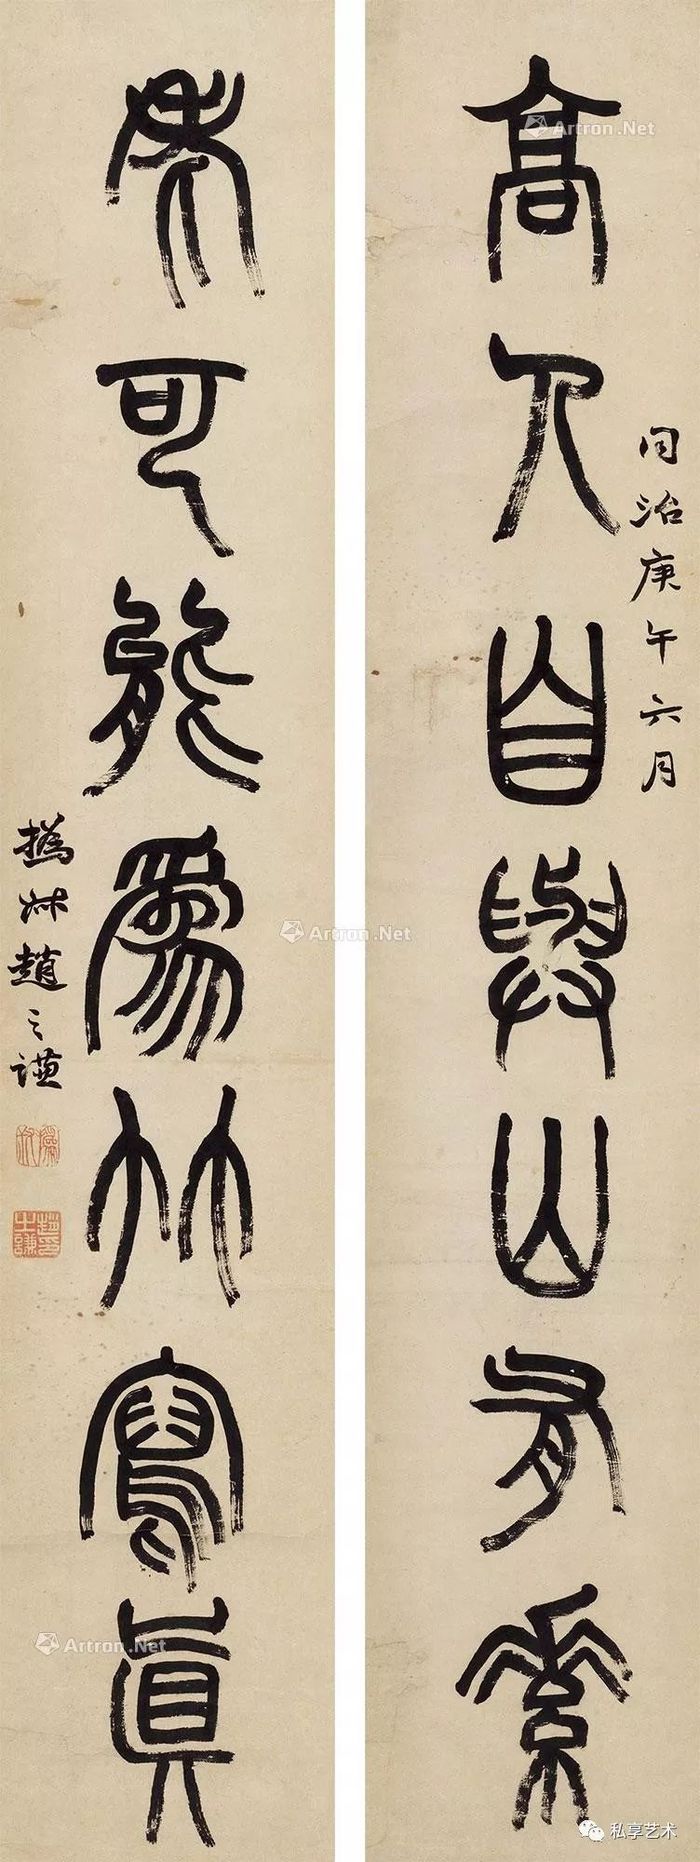 高人自與山有素
同治庚午六月
老可能為竹寫真
撝叔趙之謙
撝叔
趙印之謙
Artron.Net
Artron.Net
Artron.Net
私享艺术